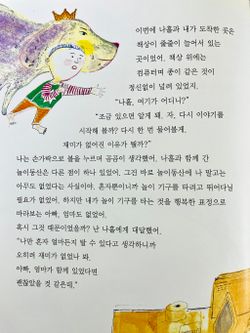 이번에 나홀과 내가 도착한 곳은
책상이 줄줄이 늘어서 있는
곳이었어. 책상 위에는
컴퓨터며 종이 같은 것이
정신없이 널려 있었지.
"나홀, 여기가 어디니?"
"조금 있으면 알게 돼. 자, 다시 이야기를
시작해 볼까? 다시 한 번 물어볼게.
재미가 없어진 이유가 뭘까?"
나는 손가락으로 볼을 누르며 곰곰이 생각했어. 나홀과 함께 간
놀이동산은 다른 점이 하나 있었어. 그건 바로 놀이동산에 나 말고는
아무도 없었다는 사실이야. 혼자뿐이니까 놀이 기구를 타려고 뛰어다닐
필요가 없었어. 하지만 내가 놀이 기구를 타는 것을 행복한 표정으로
바라보는 아빠, 엄마도 없었어.
혹시 그것 때문이었을까? 난 나홀에게 대답했어.
"나만 혼자 얼마든지 탈 수 있다고 생각하니까
오히려 재미가 없었나 봐.
아빠, 엄마가 함께 있었다면
괜찮았을 것 같은데."